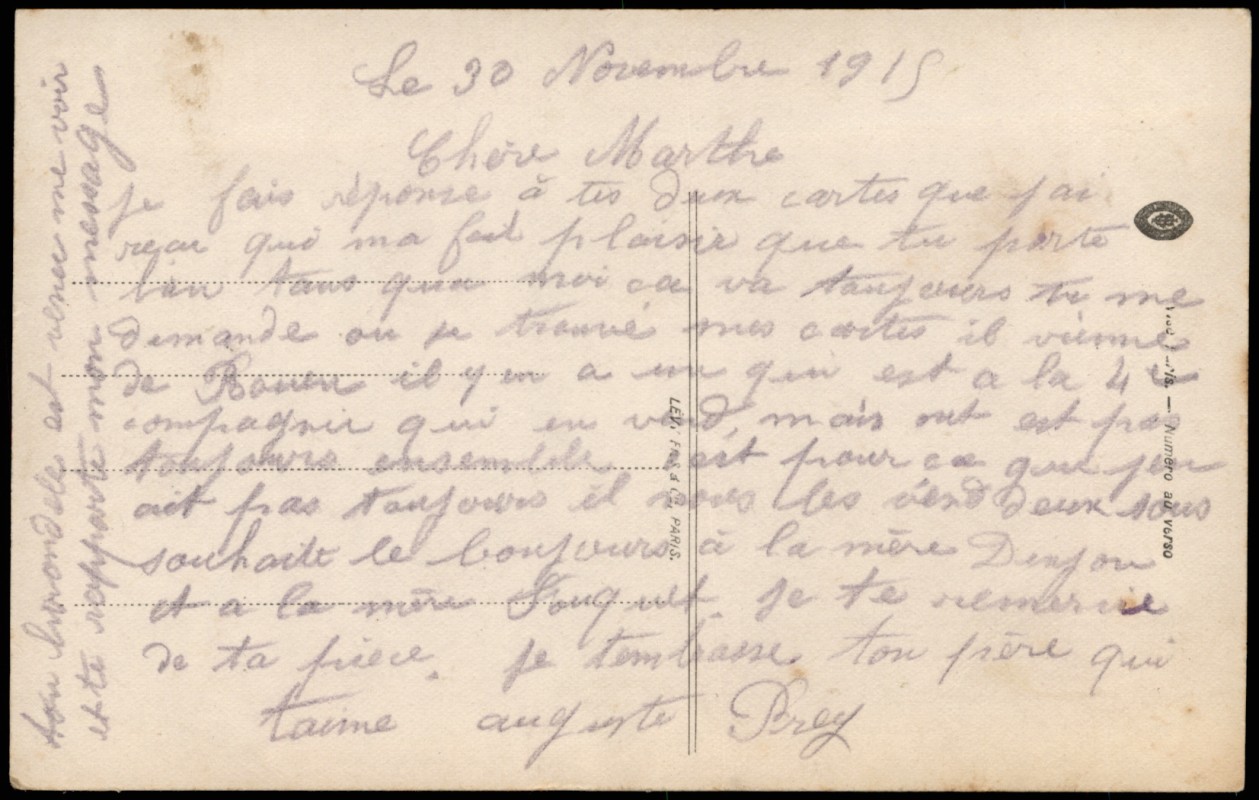 Le 30 Novembre 1915
Chère Marthe
je fais réponse à tes deux cartes que jai
recu qui ma fait plaisir que tu porte
bien tans qua moi ca va toujours tu me
demande ou je trouve mes cartes il vienne
de Rouen il y en a un qui est a la 4e
compagnie qui en vend, mais ont est pas
toujours ensemble cest pour ca que jen
ait pas toujours il nous les vend deux sous
souhaite le bonjours à la mère Denjon
et a la mère Fouquet. Je te remercie
de ta pièce. Je tembrasse ton père qui
taime auguste Brey
ton hirondelle est venu me voir
et te rapporte mon message
LÉVY FILS & Cie PARIS.
Numéro au verso